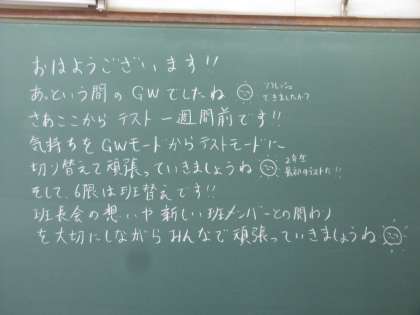 おはようございます!!
あっという間のGWでしたね
リフレッシュ
できましたか?
さあここからテスト一週間前です!!
気持ちをGWモードからテストモードに
切り替えて頑張っていきましょうね
2年生
最初のテストだ!!
そして、6限は班替えです!!
班長会の想いや新しい班メンバーとの関わり
を大切にしながらみんなで頑張っていきましょうね